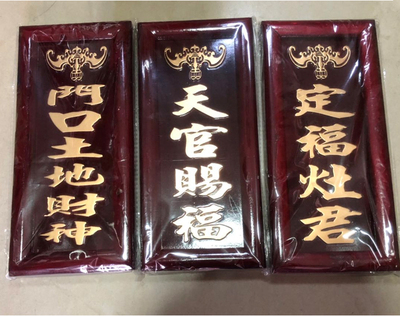 門口土地財神
天官賜福
定福灶君